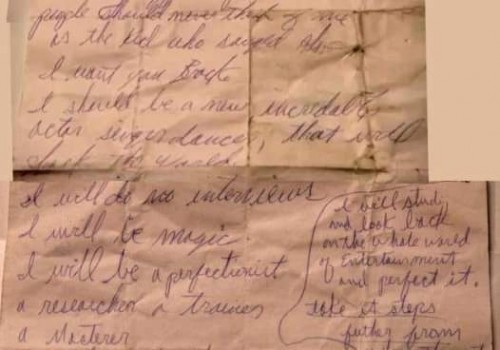 people should never think of me
as the kid who sang
I want you Back
I should be a new incredable
actor singer dancer, that will
shock the world.
I will do no interviews
I will be magic.
I will be a perfectionist
a researcher a trainer
a Masterer
I will study
and look back
on the whole world
of Entertainment
and perfect it.
take it steps
futher from